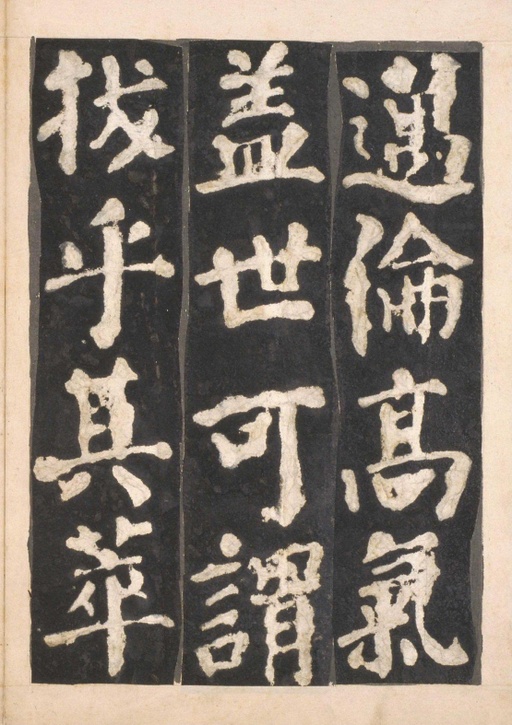 邁倫高氣
盖世可謂
拔乎其萃